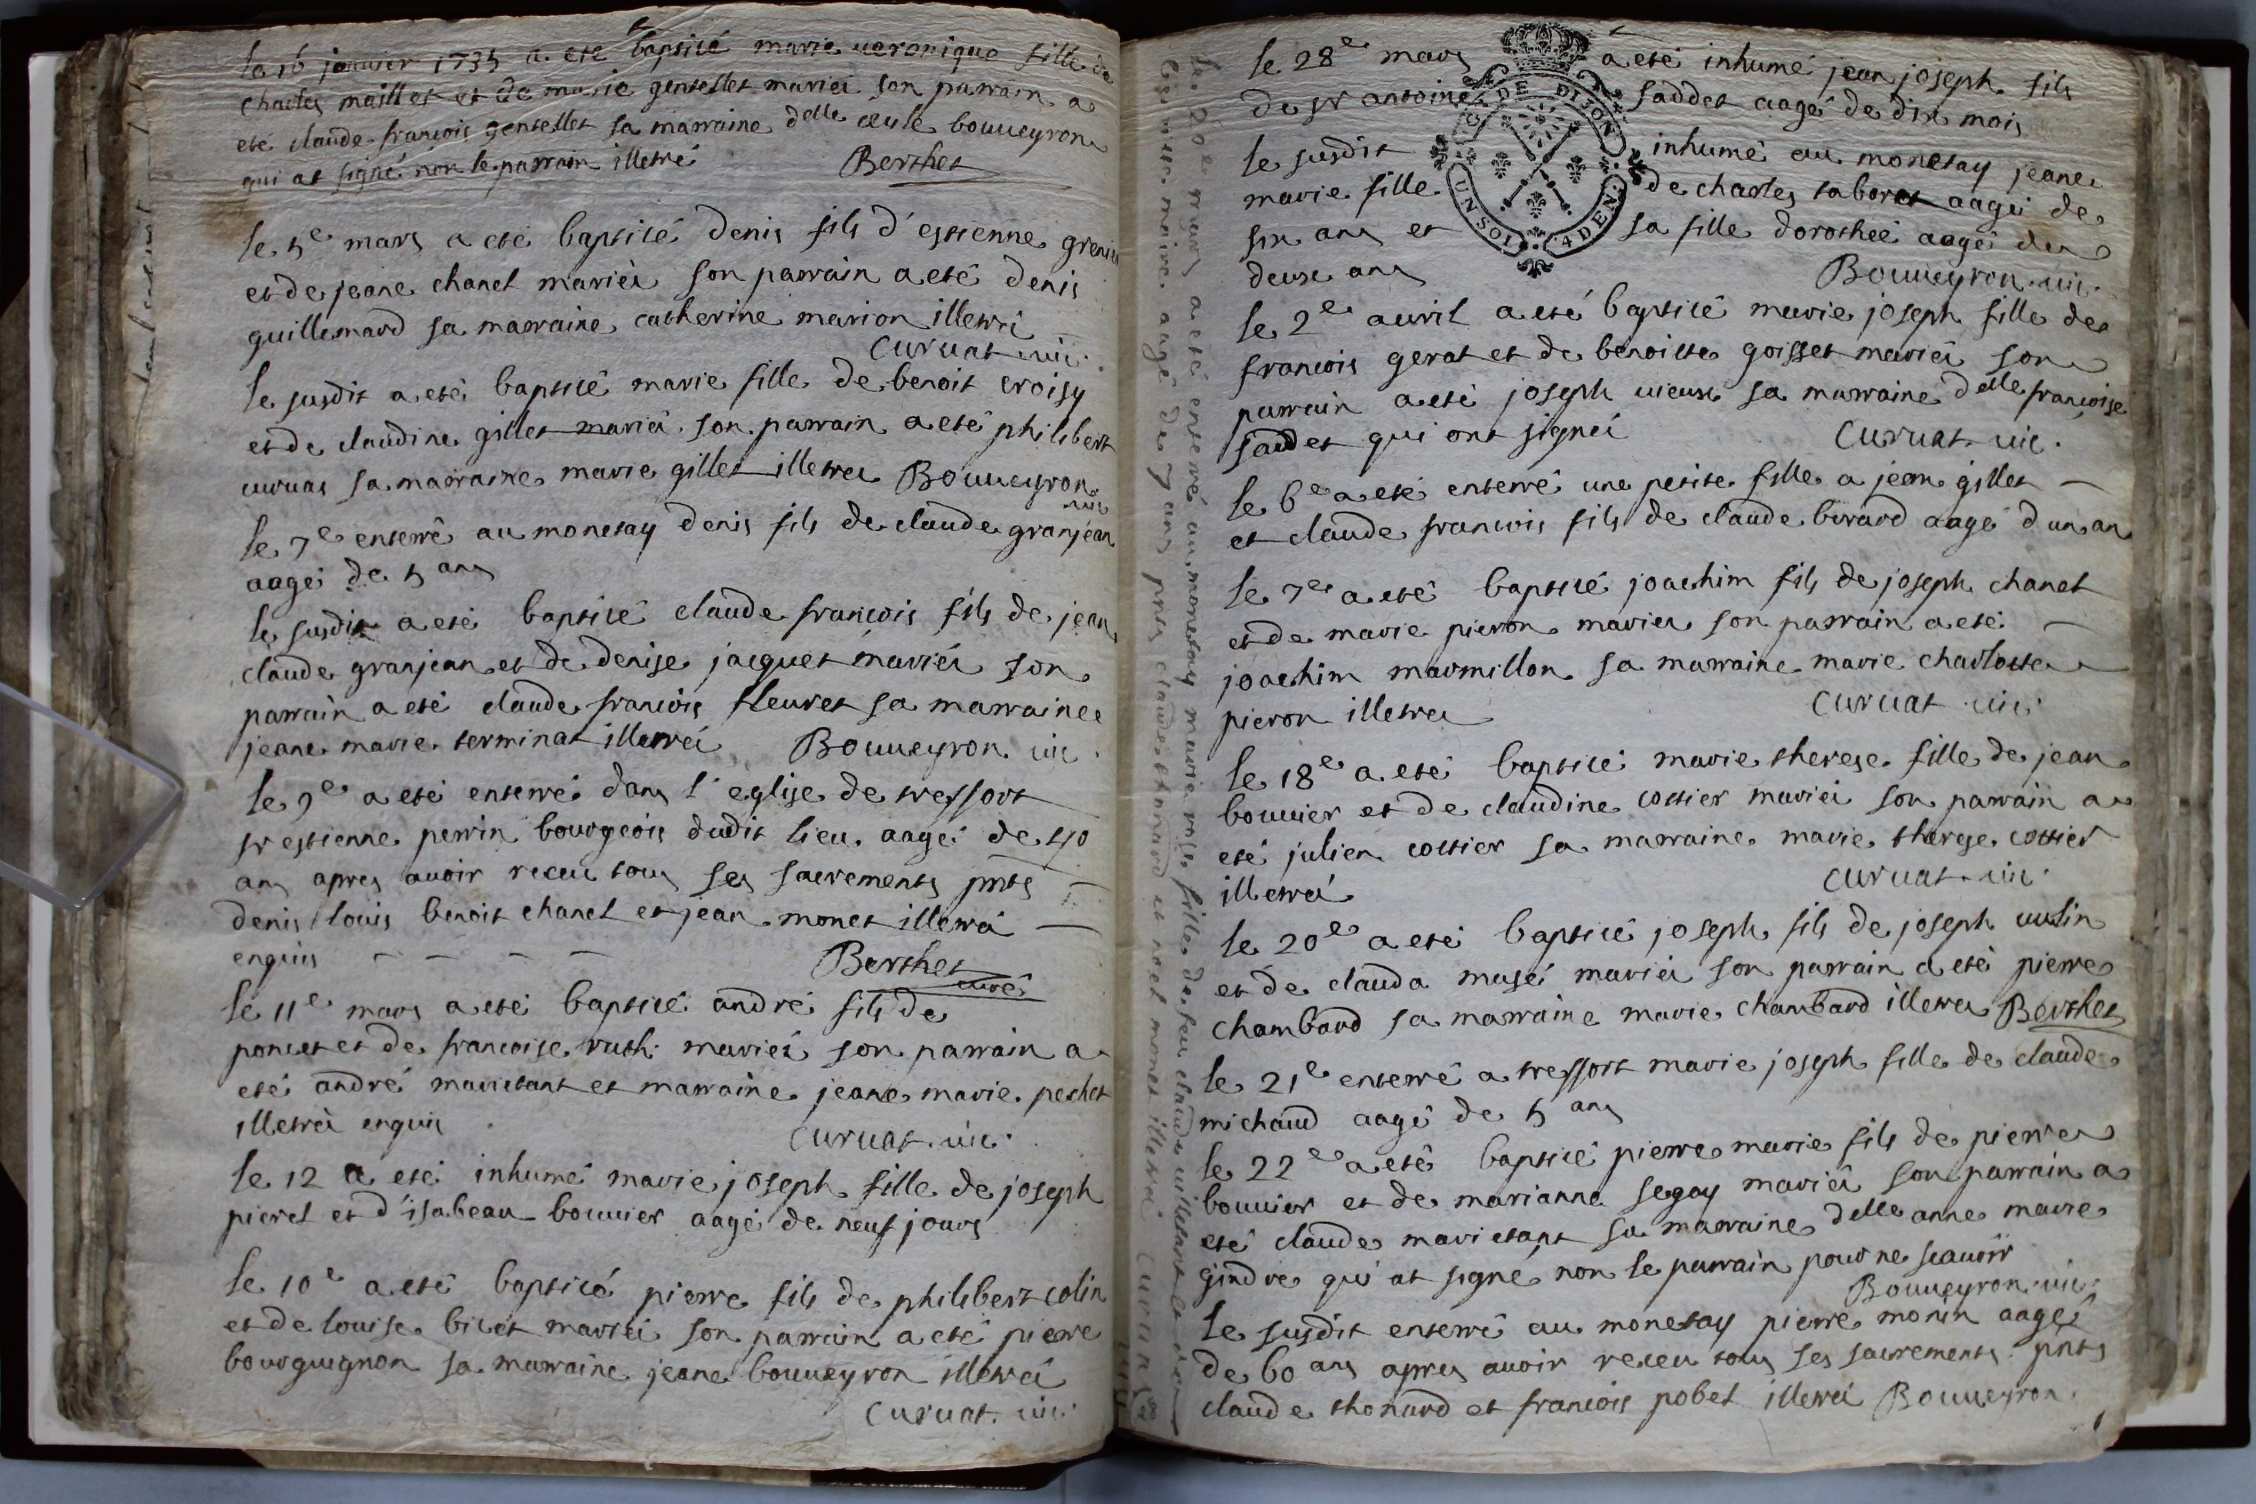 le 16 janvier 1735 a eté baptisé marie ueronique fille de
charles maillet et de marie gentellet mariéi son parrain a
eté claude francois gentellet sa marraine delle bouueyron
qui at signé non le parrain illetré Berthet
le 5e mars a eté baptisé denis fils d'estienne
et de jeane chanel mariéi son parrain a eté denis
guillemard sa marraine catherine marion illetréi
Curuat uic.
le susdit a eté baptisé marie fille de benoit croisy
et de claudine gillet mariéi son parrain a eté philibert
sa marraine marie gillet illetrei Bouueyron
uic
le 7e enterré au monetay denis fils de claude granjean
aagé de 5 ans
le susdit a eté baptisé claude francois fils de jean
claude granjean et de denise jacquet mariéi son
parrain a eté claude francois fleuret sa marraine
jeane marie terminat illetréi Bouueyron uic.
le 9e a eté enterré dans l'eglise de treffort
sr estienne perrin bourgeois dudit lieu aagé de 40
ans apres auoir receu tous ses sacrements pnts
denis louis benoit chanel et jean monet illetréi
enquis Berthet
curé
le 11e mars a eté baptisé andré fils de
poncet et de francoise ruth mariéi son parrain a
eté andré marietant et marraine jeane marie pechet
illetréi enquis Curuat uic.
le 12 a eté inhumé marie joseph fille de joseph
pierel et d'isabeau bouuier aagé de neuf jours
le 10e a eté baptisé pierre fils de philibert colin
et de louise bicet mariéi son parrain a eté pierre
bourguignon sa marraine jeane bouueyron illetréi
Curuat uic.
le 20e mars a eté enterré au monetay marie fille de feu claude uilletant et de
aagé de 7 ans pnts claude thonard et noel monet illetréi Curuat
uic
le 28e mars a eté inhumé jean joseph fils
de sr antoine saddet aagé de dix mois
le susdit inhumé au monetay jeane
marie fille de charles taboret aagéi de
six ans et sa fille dorothéé aagéi de
deux ans Bouueyron uic.
G. DE DIJON
UN SOL 4 DEN.
le 2e auril a eté baptisé marie joseph fille de
francois gerat et de benoitte goisset mariéi son
parrain a eté joseph uieux sa marraine delle francoise
saddet qui ont signéi Curuat uic.
le 6e a eté enterré une petite fille a jean gillet
et claude francois fils de claude berard aagé d un an
le 7e a eté baptisé joachim fils de joseph chanel
et de marie pieron mariei son parrain a eté
joachim marmillon sa marraine marie charlotte
pieron illetrei Curuat uic.
le 18e a eté baptisé marie therese fille de jean
bouuier et de claudine cottier mariéi son parrain a
eté julien cottier sa marraine marie therese cottier
illetréi Curuat uic.
le 20e a eté baptisé joseph fils de joseph uulin
et de clauda musei mariéi son parrain a eté pierre
chambard sa marraine marie chambard illetrei Berthet
le 21e enterré a treffort marie joseph fille de claude
michaud aagé de 5 ans
le 22e a eté baptisé pierre marie fils de pierre
bouuier et de marianne segay mariéi son parrain a
eté claude marietant sa marraine delle anne marie
gindre qui at signé non le parrain pour ne scauoir
Bouueyron uic.
le susdit enterré au monetay pierre monin aagéi
de 60 ans apres auoir receu tous ses sacrements pnts
claude thonard et francois pobel illetréi Bouueyron.